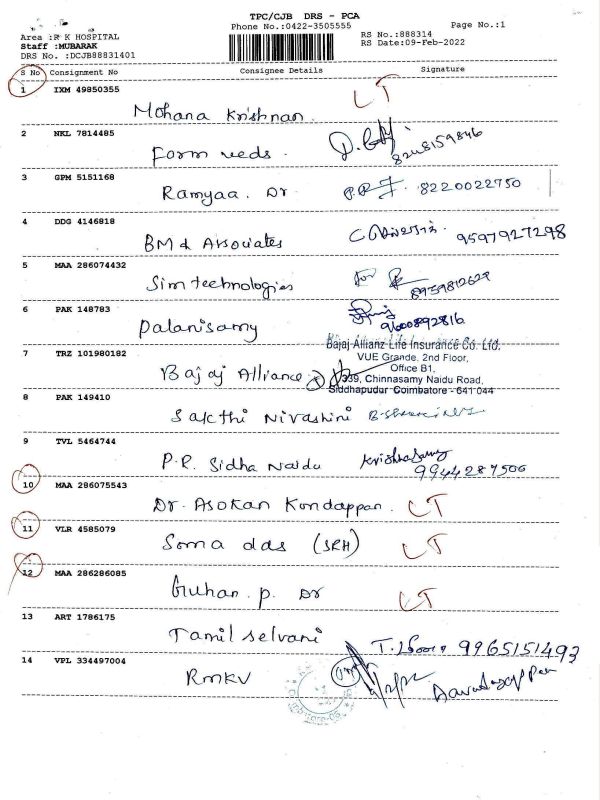 TPC/CJB DRS - PCA
Phone No.:0422-3505555
Page No.:1
Area :R K HOSPITAL
RS No.:888314
Staff :MUBARAK
RS Date:09-Feb-2022
DRS No. :DCJB88831401
S No Consignment No Consignee Details Signature
1 IXM 49850355
Mohana Krishnan LT
2 NKL 7814485
Form veds. 8248159846
3 GPM 5151168
Ramyaa. Dr 8220022750
4 DDG 4146818
BM & Associates 9597927298
5 MAA 286074432
Sim technologies 8939812629
6 PAK 148783
Palanisamy 9600892816
Bajaj Allianz Life Insurance Co. Ltd.
7 TRZ 101980182
VUE Grande, 2nd Floor,
Office B1,
Bajaj Alliance 339, Chinnasamy Naidu Road,
Siddhapudur Coimbatore - 641 044
8 PAK 149410
Sakthi Nivashini
9 TVL 5464744
P.R. Sidha Naidu Krishnasamy
9944287500
10 MAA 286075543
Dr. Asokan Kondappan. LT
11 VLR 4585079
Soma das (SRH) LT
12 MAA 286286085
Guhan. p. Dr LT
13 ART 1786175
Tamil selvani 9965151493
14 VPL 334497004
RMKV